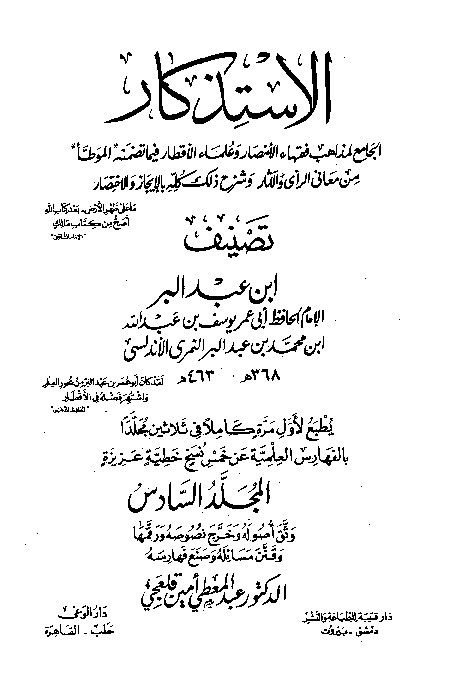 الاستذكار
الجامع لمذاهب فقهاء الأمصار وعلماء الأقطار فيما تضمنه "الموطأ"
من معاني الرأي والآثار وشرح ذلك كله بالإيجاز والاختصار
ما على ظهر الأرض - بعد كتاب الله
أصح من كتاب مالك
تصنيف
ابن عبد البر
الإمام الحافظ أبي عمر يوسف بن عبد الله
ابن محمد بن عبد البر النمري الأندلسي
٣٦٨هـ - ٤٦٣هـ
لقد كان أبو عمر بن عبد البر من بحور العلم
واشتهر فضله في الأقطار
يطبع لأول مرة كاملا في ثلاثين مجلدا
بالفهارس العلمية عن خمس نسخ خطية عزيزة
المجلد السادس
وثق أصوله وخرج نصوصه ورقمها
وقنن مسائله وصنع فهارسه
الدكتور عبد المعطي أمين قلعجي
دار قتيبة للطباعة والنشر
دمشق - بيروت
دار الوعي
حلب - القاهرة